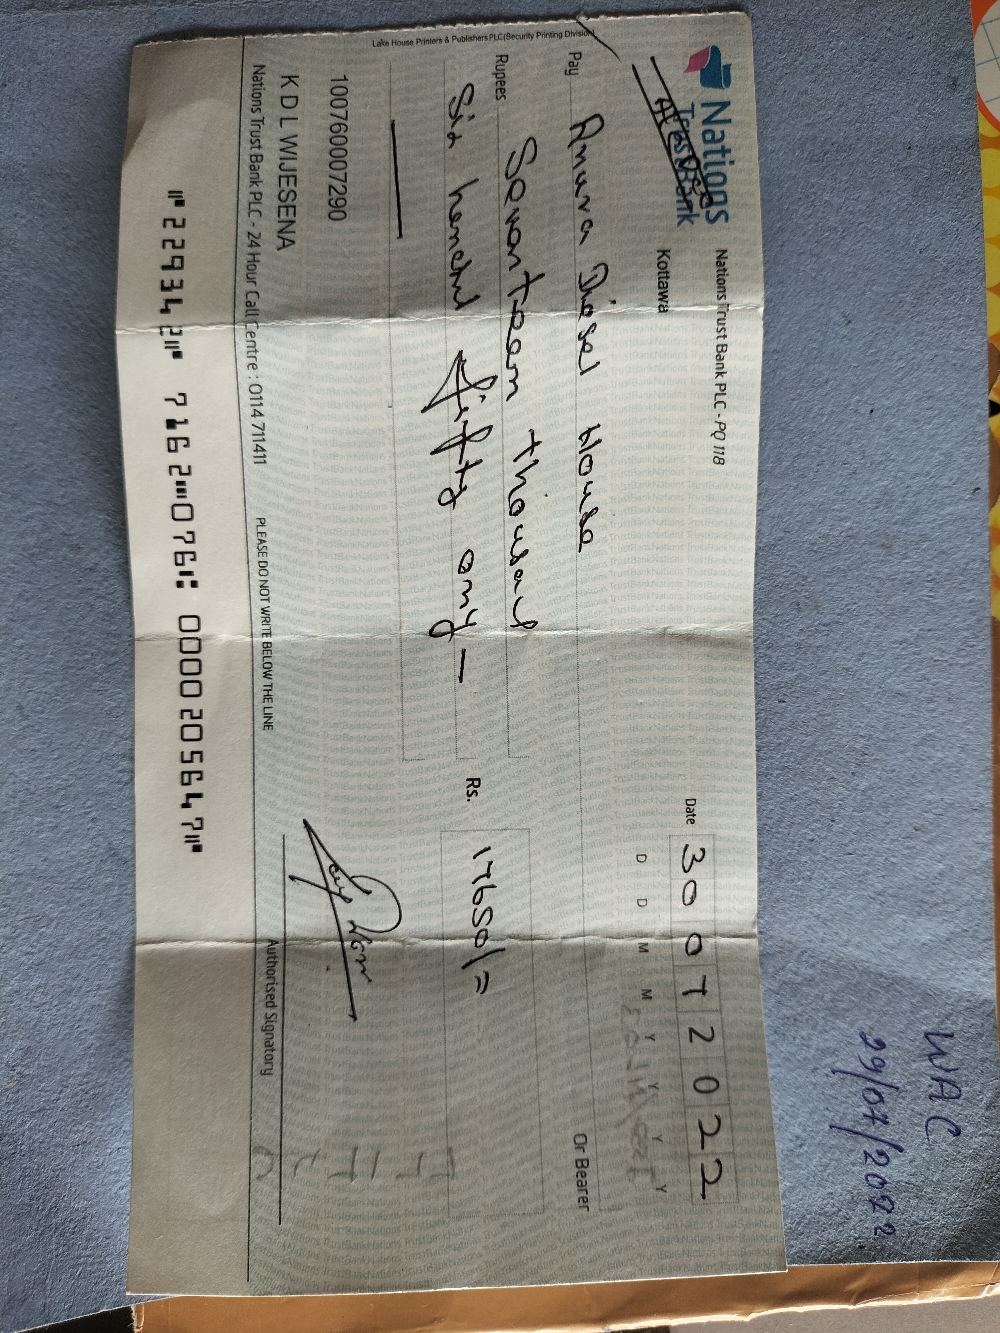 Lake House Printers & Publishers PLC(Security Printing Division)
Nations
TrustBank
Nations Trust Bank PLC - PQ 118
Kottawa
Date 30 07 2022
D D M M Y Y Y Y
Pay Amura Diesel House Or Bearer
Rupees Sevanteean thousand
Six hundred fifty only —
Rs. 17650/=
100760007290
K D L WIJESENA
Nations Trust Bank PLC - 24 Hour Call Centre : 0114 711411
PLEASE DO NOT WRITE BELOW THE LINE
Authorised Signatory
⑈229342⑈ 7162⑉076⑆ 0000205647⑈
WAC
29/07/2022